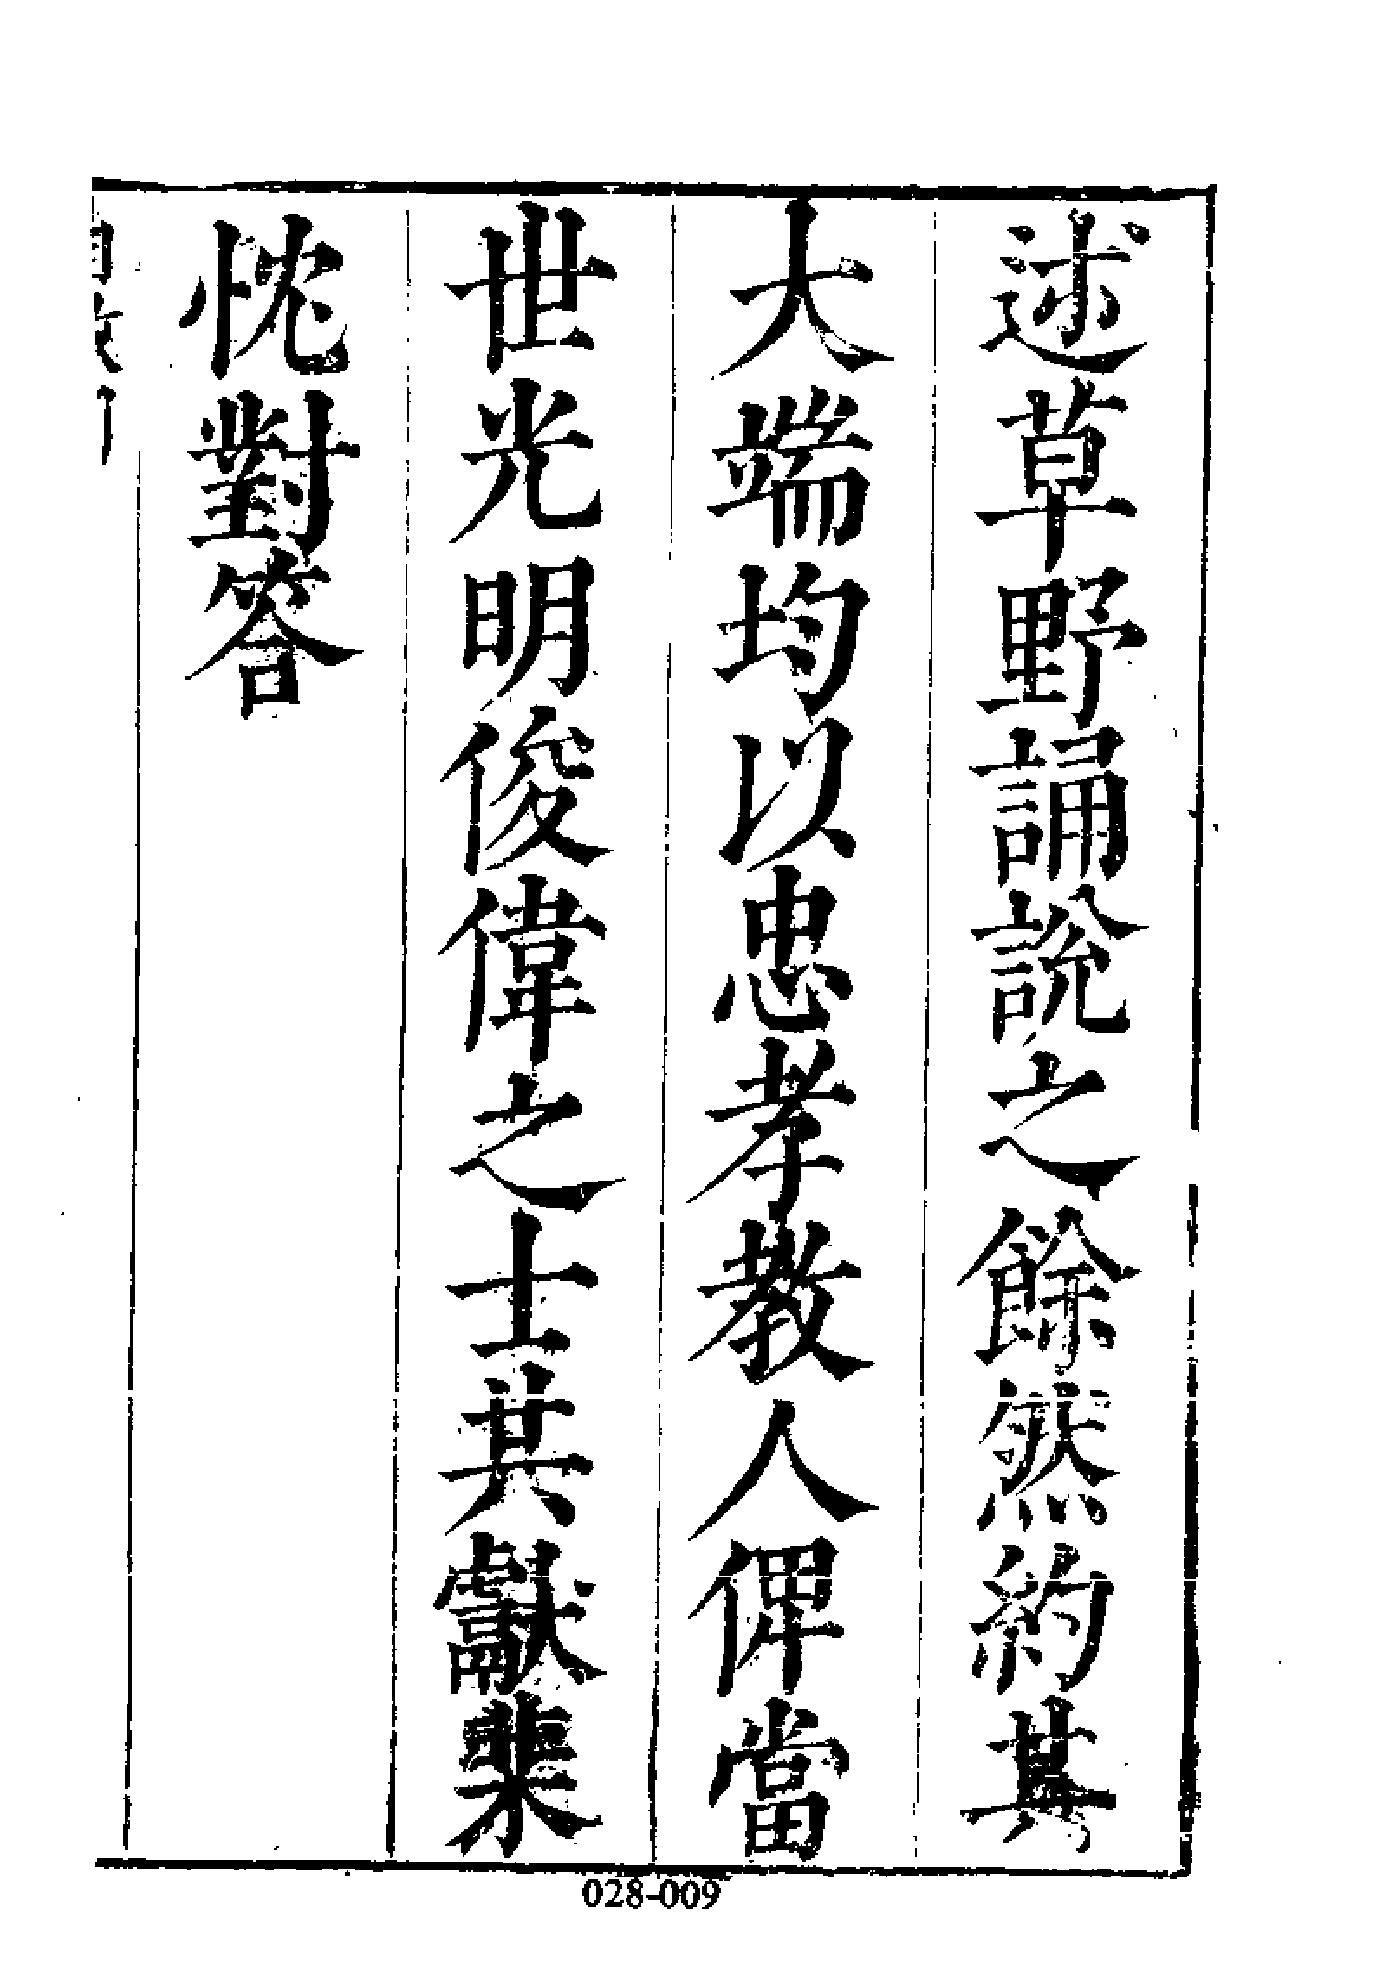 述草野誦說之餘然約其
大端均以忠孝教人俾當
世光明俊偉之士共獻棐
忱對答
028-009